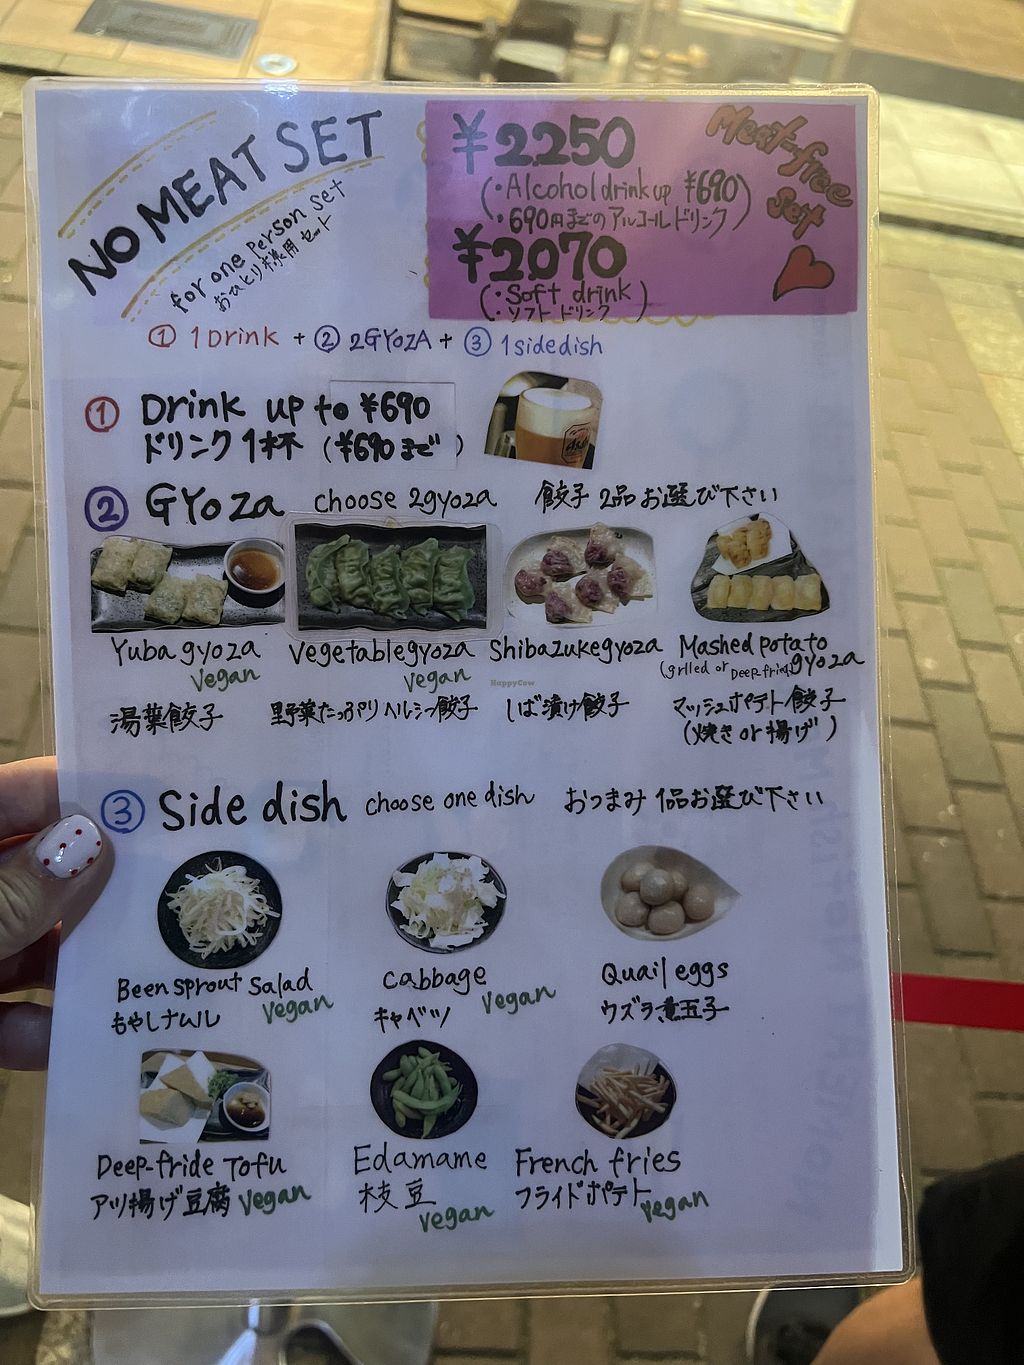 NO MEAT SET
for one person set
おひとり様用セット
¥2250
(・Alcohol drink up ¥690)
(・690円までのアルコールドリンク)
¥2070
(・Soft drink)
(・ソフトドリンク)
Meat-free
Set
① 1Drink + ② 2GYOZA + ③ 1sidedish
① Drink up to ¥690
ドリンク1杯 (¥690まで)
② GYOZA choose 2gyoza 餃子 2品お選び下さい
Yuba gyoza
Vegan
湯葉餃子
Vegetablegyoza
Vegan
野菜たっぷりヘルシー餃子
Shibazukegyoza
しば漬け餃子
Mashed potato
(grlled or Deep-fried) gyoza
マッシュポテト餃子
(焼き or 揚げ)
HappyCow
③ Side dish choose one dish おつまみ 1品お選び下さい
Been sprout salad
Vegan
もやしナムル
Cabbage
Vegan
キャベツ
Quail eggs
ウズラ煮玉子
Deep-fride Tofu
アツ揚げ豆腐 Vegan
Edamame
枝豆
Vegan
French fries
フライドポテト
Vegan